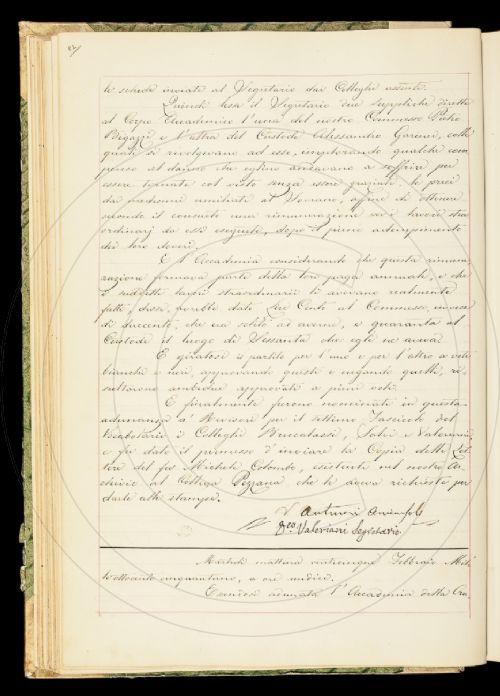 82
le schede inviate al Segretario dai Colleghi assenti.
Quindi lesse il Segretario due suppliche dirette
al Corpo Accademico l'una del nostro Commesso Pietro
Bigazzi e l'altra del Custode Alessandro Garoni, colle
quali si rivolgevano ad esse, implorando qualche com
penso al danno che eglino avevano a soffrire per
essere tornate col visto senza essere graziati, le preci
da medesimi umiliate al Sovrano, affine di ottenere
secondo il consueto una rimunerazione per i lavori stra
ordinarj da essi eseguiti, dopo il pieno adempimento
dei loro doveri.
E l'Accademia considerando che questa rimune
razione formava parte della loro paga annuale, e che
i suddetti lavori straordinarii li avevano realmente
fatti, disse, sarebbe dato Lire Cento al Commesso, invece
di duecento, che era solito ad avere, e quaranta al
Custode il luogo di Sessanta che egli ne aveva.
E quatosi il partito per l'uno e per l'altro a voti
bianchi e neri, approvando questi e negando quelli, re
sultarono ambedue approvati a pieni voti.
E finalmente furono nominati in questa
adunanza a Revisori per il settimo Fascicolo del
Vocabolario i Colleghi Brucalassi, Salvi e Valeriani,
e fu dato il permesso d'inviare la Copia delle Let
tere del fu Michele Colombo, esistenti nel nostro Ar
chivio al Collega Pezzana che le aveva richieste per
darle alle stampe.
V. Antinori Arciconsolo
D.co Valeriani Segretario
Martedì mattina venticinque Febbraio Mil
leottocento cinquantuno, a ore undici.
Essendosi adunata l'Accademia della Cru